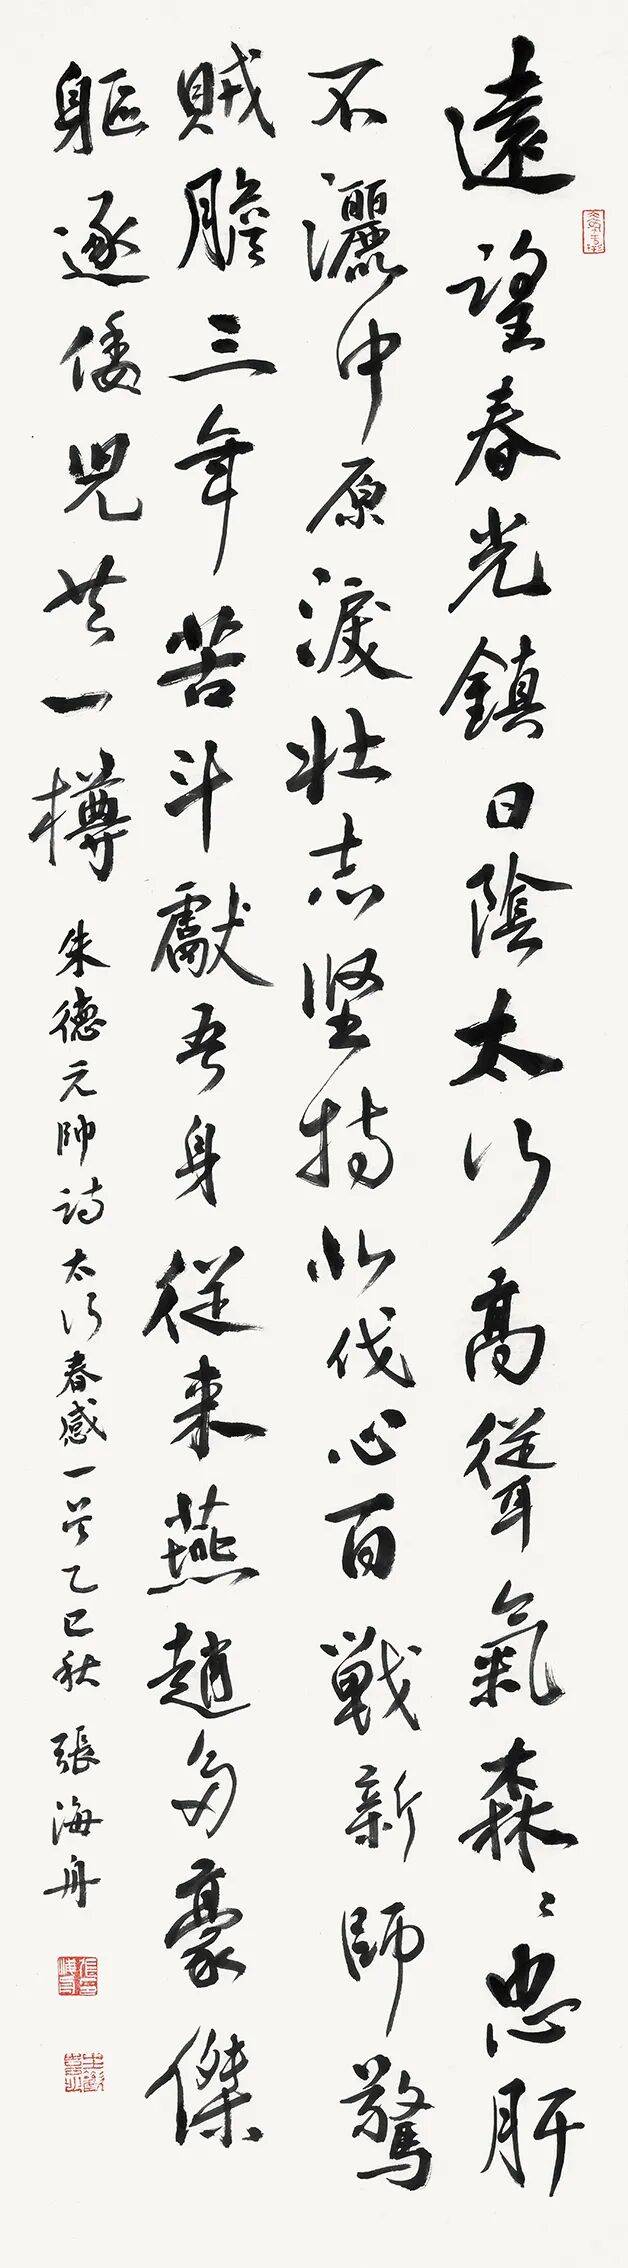 遠望春光鎮日陰太行高聳氣森〻忠肝
不灑中原淚壯志坚持北伐心百戰新師驚
賊膽三年苦斗獻吾身從来燕趙多豪傑
驅逐倭児共一樽
朱德元帥詩太行春感一首乙巳秋張海舟